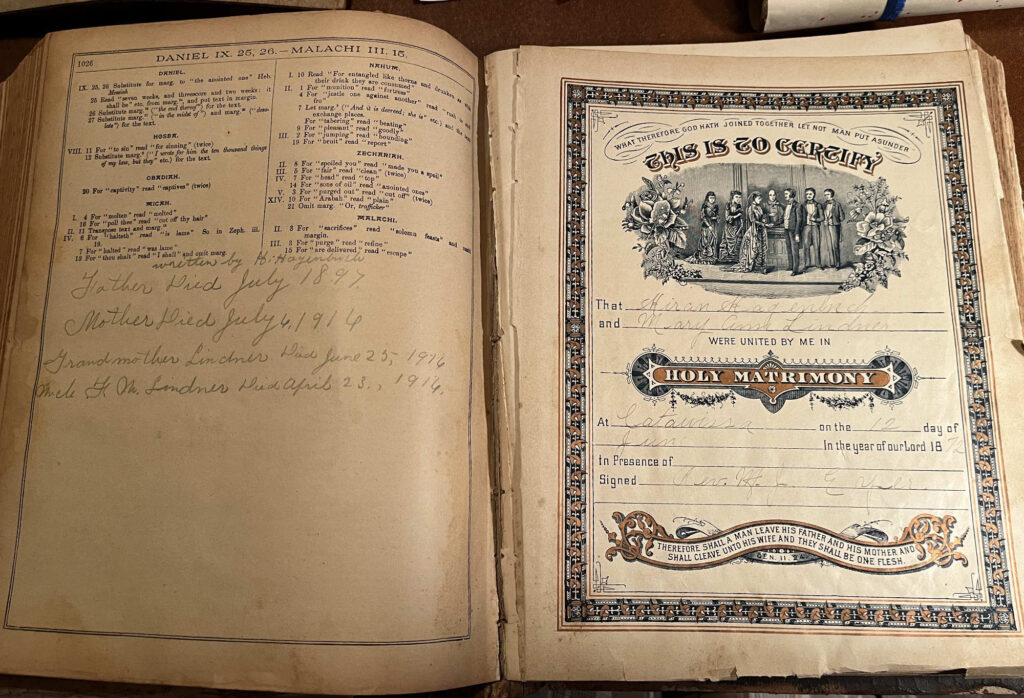 1026
DANIEL IX. 25, 26.—MALACHI III, 15.
DANIEL.
IX. 25, 26 Substitute for marg. to "the anointed one" Heb.
Messiah
25 Read "seven weeks, and threescore and two weeks: it
shall be" etc. from marg., and put text in margin.
26 Substitute marg. ("the end thereof") for the text.
27 Substitute marg. ("in the midst of") and marg. ("deso-
late") for the text.
HOSEA.
VIII. 11 For "to sin" read "for sinning" (twice)
12 Substitute marg. ("I wrote for him the ten thousand things
of my law, but they" etc.) for the text.
OBADIAH.
20 For "captivity" read "captives" (twice)
MICAH.
I. 4 For "molten" read "melted"
16 For "poll thee" read "cut off thy hair"
II. 11 Transpose text and marg.
IV. 6 For "halteth" read "is lame" So in Zeph. iii.
19.
7 For "halted" read "was lame"
13 For "thou shalt" read "I shall" and omit marg.
NAHUM.
I. 10 Read "For entangled like thorns and drunken as with
their drink they are consumed"
II. 1 For "munition" read "fortress"
4 For "justle one against another" read "rush to and
fro"
7 Let marg. ("And it is decreed; she is" etc.) and the text
exchange places.
For "tabering" read "beating"
9 For "pleasant" read "goodly"
III. 2 For "jumping" read "bounding"
19 For "bruit" read "report"
ZECHARIAH.
II. 8 For "spoiled you" read "made you a spoil"
III. 5 For "fair" read "clean" (twice)
IV. 7 For "head" read "top"
14 For "sons of oil" read "anointed ones"
V. 3 For "purged out" read "cut off" (twice)
XIV. 10 For "Arabah" read "plain"
21 Omit marg. "Or, trafficker"
MALACHI.
II. 3 For "sacrifices" read "solemn feasts" and omit
margin.
III. 3 For "purge" read "refine"
15 For "are delivered" read "escape"
written by H. Hagenbuch
Father Died July 1897
Mother Died July 4, 1914
Grandmother Lindner Died June 25, 1916
Died April 23., 1914.
WHAT THEREFORE GOD HATH JOINED TOGETHER LET NOT MAN PUT ASUNDER
THIS IS TO CERTIFY
That Hiran Hagenbuch
and Mary Ann Lindner
WERE UNITED BY ME IN
HOLY MATRIMONY
At Catawissa on the 12 day of
Jun In the year of our Lord 18 72
In Presence of
Signed Rev.
THEREFORE SHALL A MAN LEAVE HIS FATHER AND HIS MOTHER AND
SHALL CLEAVE UNTO HIS WIFE AND THEY SHALL BE ONE FLESH.
GEN. 11. 24.